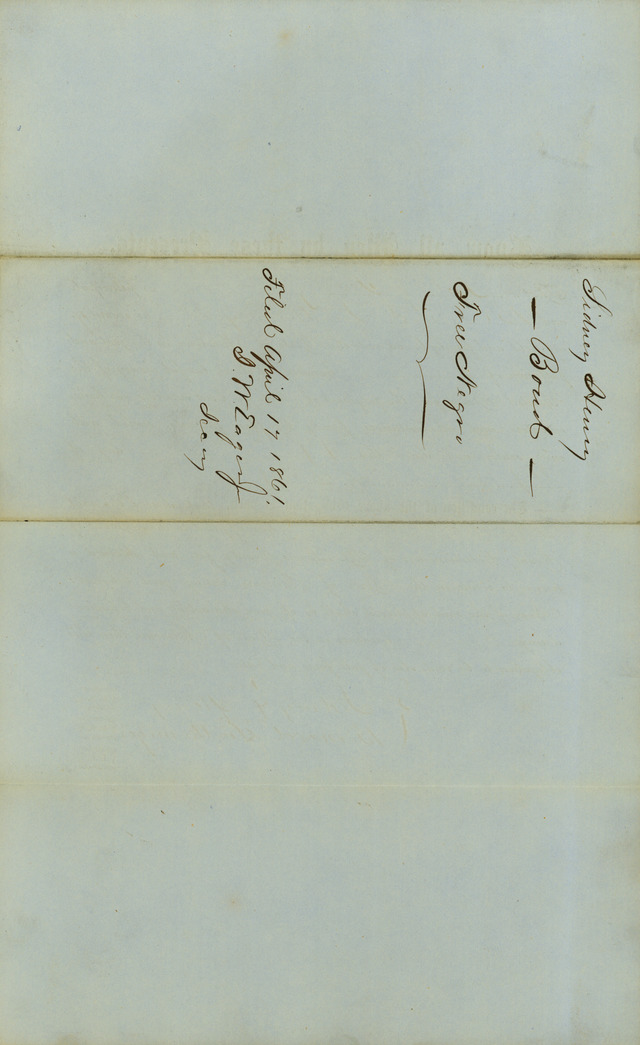 Sidney Henry
— Bond —
Free Negro
Filed April 17 1861.
J. W. Eagers
Secy